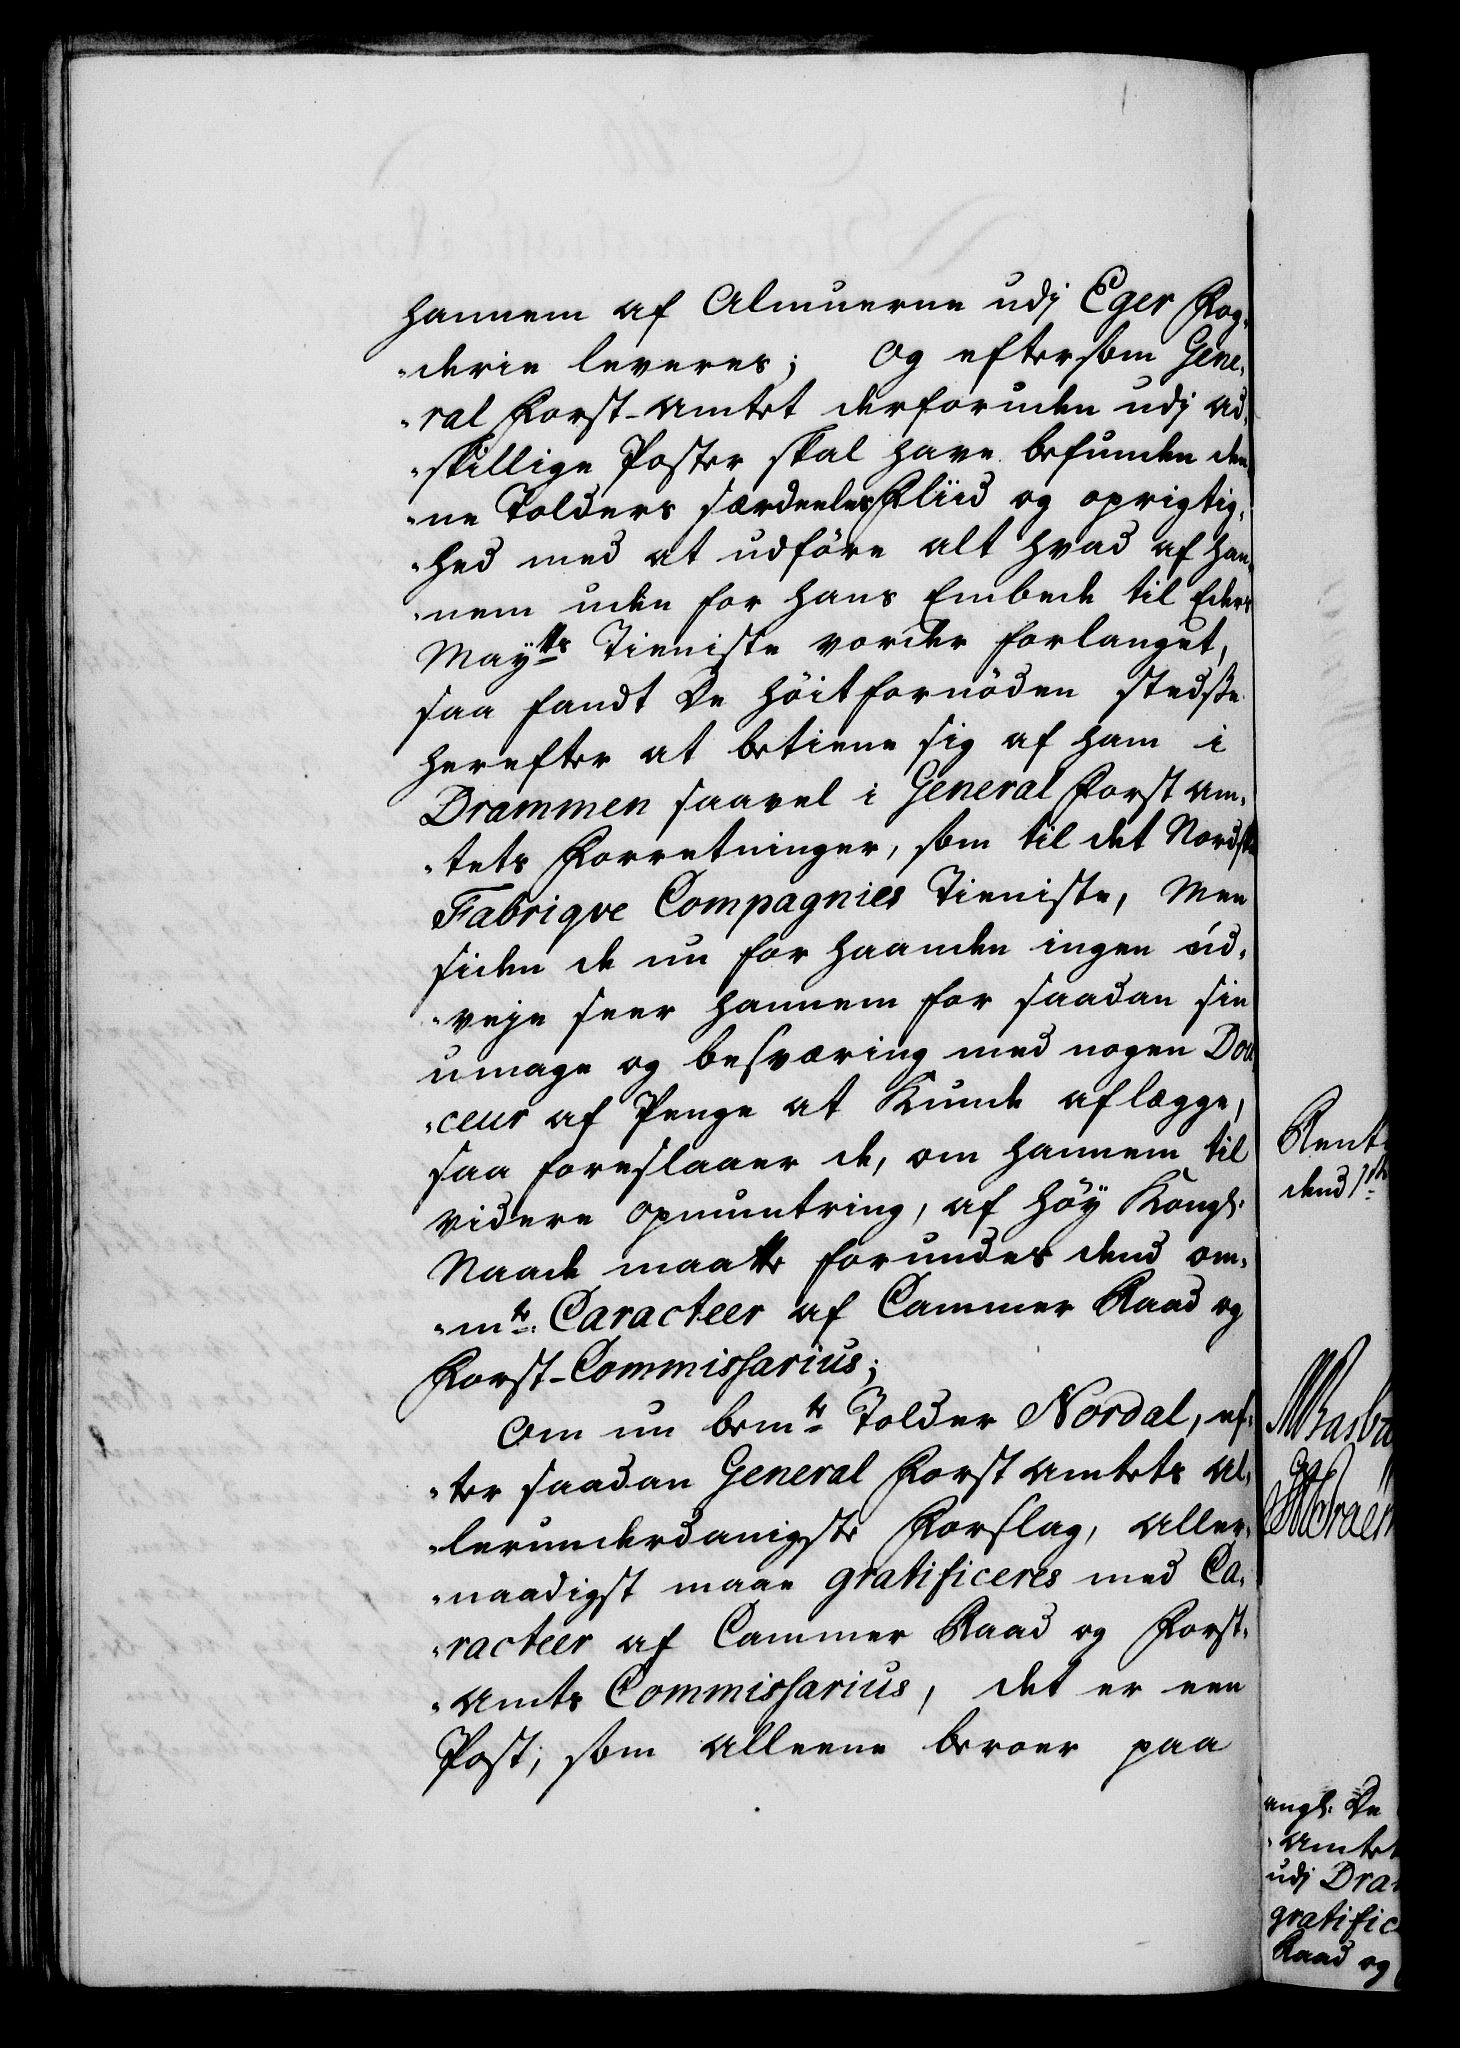 hannem af Almuerne udj Eger Fog„
„derie leveres; og eftersom Gene„
„ral Forst-Amtet derforuden udj ad„
„skillige Poster skal have befunden den„
„ne Tolders særdeeles Fliid og oprigtig„
„hed med at udföre alt hvad af han„
„nem uden for hans Embede til Eders
Maytts Tieniste vorder forlanget,
saa fandt De höitfornöden stedsse
herefter at betiene sig af ham i
Drammen saavel i General Forst Am„
„tets Forretninger, som til det Nordske
Fabriqve Compagnies Tieniste, Men
siden de nu for haanden ingen ud„
„veje seer hannem for saadan sin
umage og besværing med nogen Dou„
„ceur af Penge at Kunde aflægge,
saa foreslaaer de, om hannem til
videre opmuntring, af höy Kongl:
Naade maatte forundes dend om„
„mte: Caracteer af Cammer Raad og
Forst-Commissarius;
Om nu bemte Tolder Nordal, ef„
„ter saadan General Forst Amtets al„
„lerunderdanigste Forslag, aller„
„naadigst maae gratificeres med Ca„
„racteer af Cammer Raad og Forst„
„Amts Commissarius, det er een
Post, som alleene beroer paa
Rent
dend 1
angl. De
„Amtet
udj Dra
gratific
Raad og